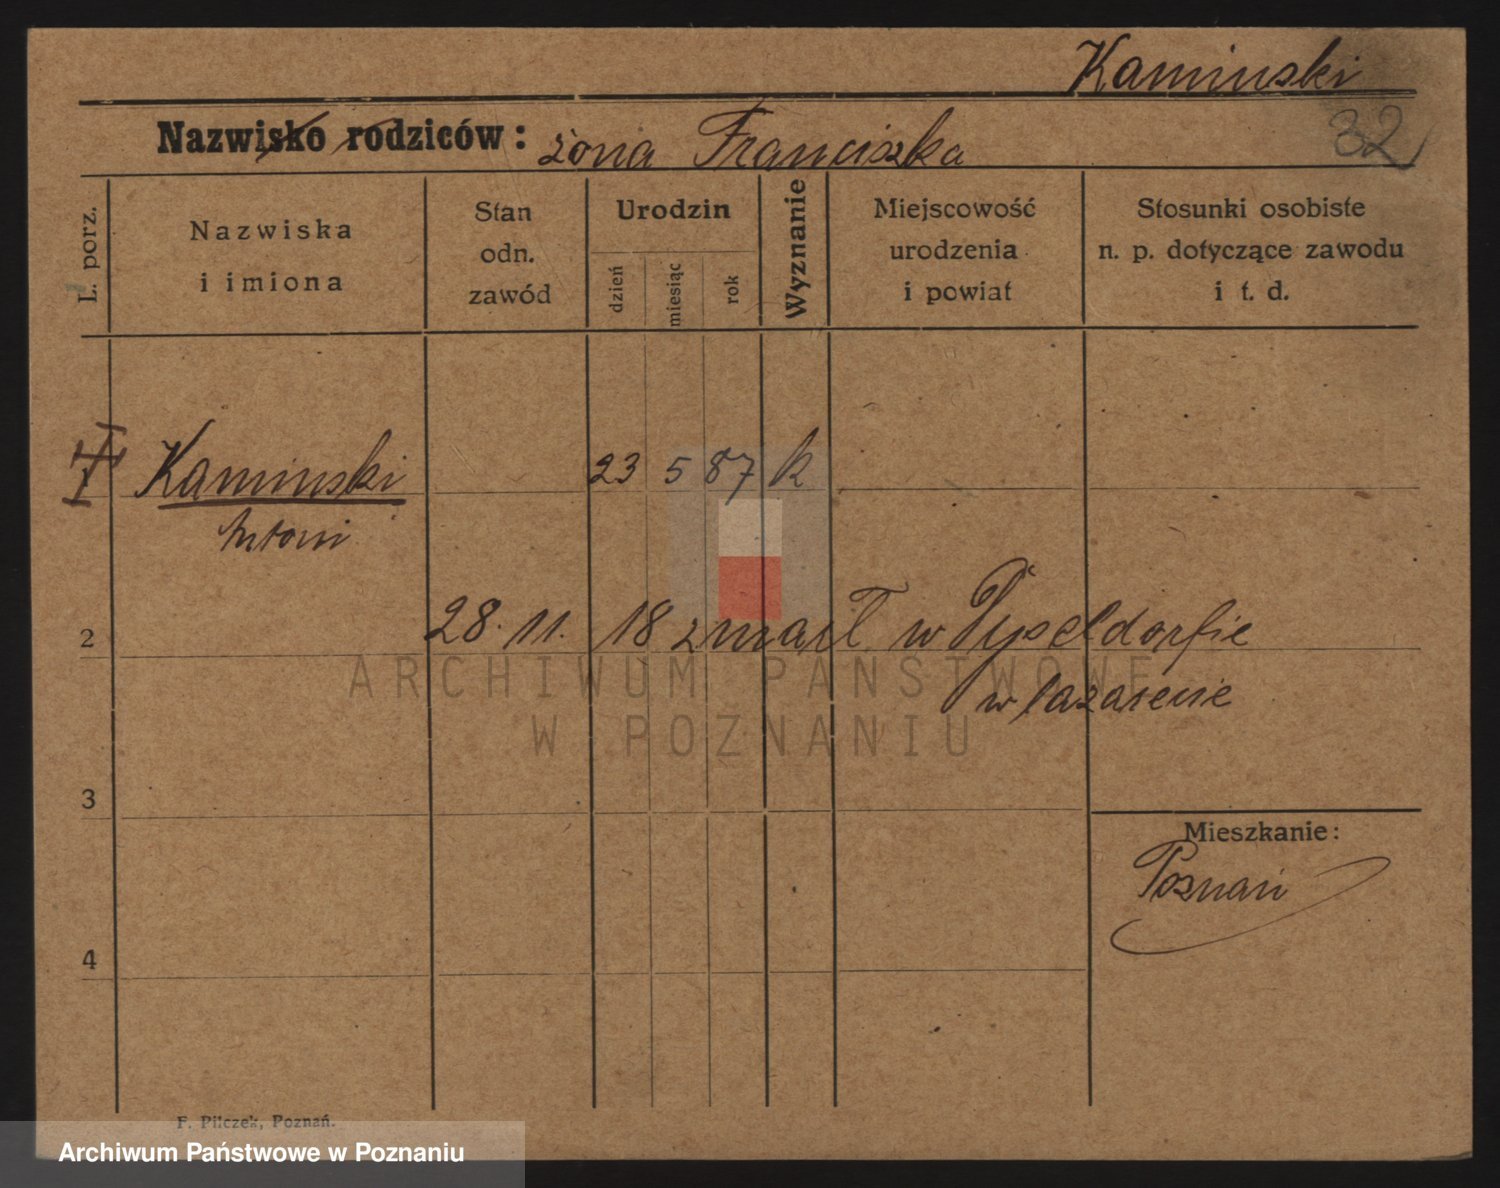 Kaminski
32
Nazwisko rodziców: żona Franciszka
L. porz.
Nazwiska
i imiona
Stan
odn.
zawód
Urodzin
dzień
miesiąc
rok
Wyznanie
Miejscowość
urodzenia
i powiat
Stosunki osobiste
n. p. dotyczące zawodu
i t. d.
Kaminski 23 5 87 k
Antoni
2 28. 11. 18 zmarł w Dyseldorfie
w lazarecie
3
Mieszkanie:
Poznań
4
F. Pilczek, Poznań.
ARCHIWUM PAŃSTWOWE
W POZNANIU
Archiwum Państwowe w Poznaniu